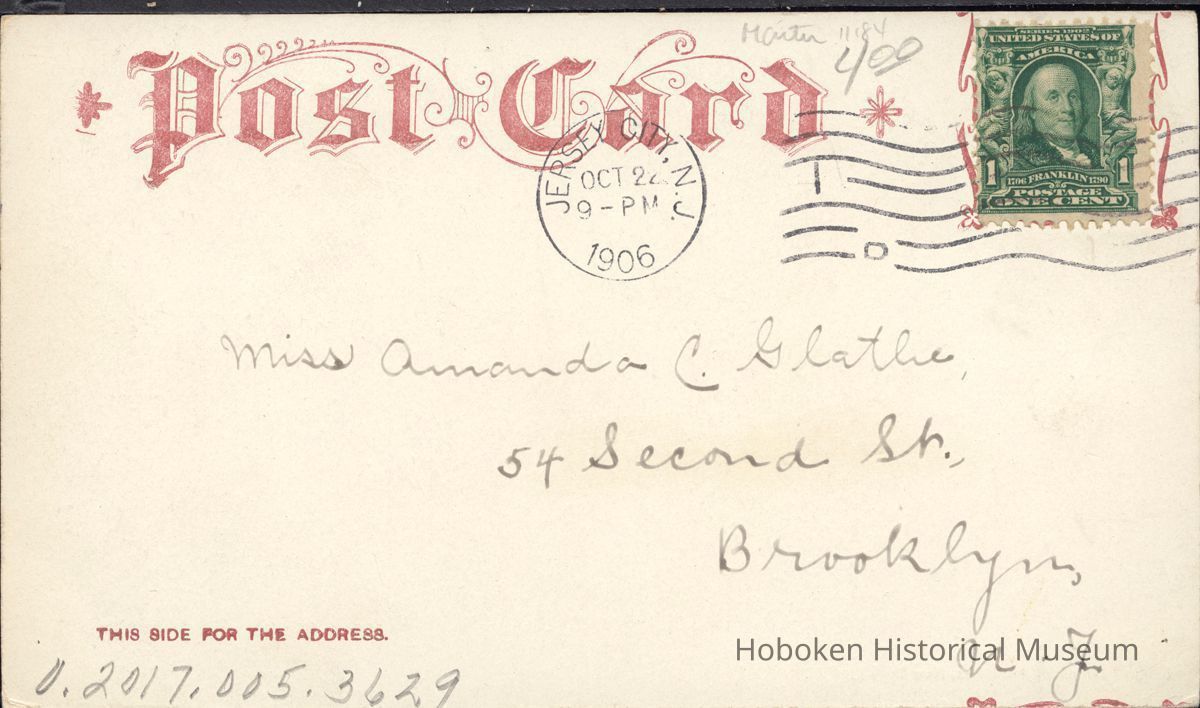 Post Card
11184
4.00
SERIES 1902
UNITED STATES OF
AMERICA
1 1
1706 FRANKLIN 1790
POSTAGE
ONE CENT
JERSEY CITY, N.J.
OCT 22
9-PM
1906
D
Miss Amanda C. Glathe,
54 Second St.,
Brooklyn,
N.Y.
THIS SIDE FOR THE ADDRESS.
Hoboken Historical Museum
0.2017.005.3629